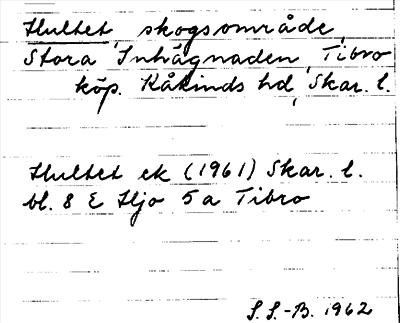 Hultet, skogsområde,
Stora Inhägnaden, Tibro
köp. Kåkinds hd, Skar. l.
Hultet ek (1961) Skar. l.
bl. 8 E Hjo 5 a Tibro
S.S.-B. 1962